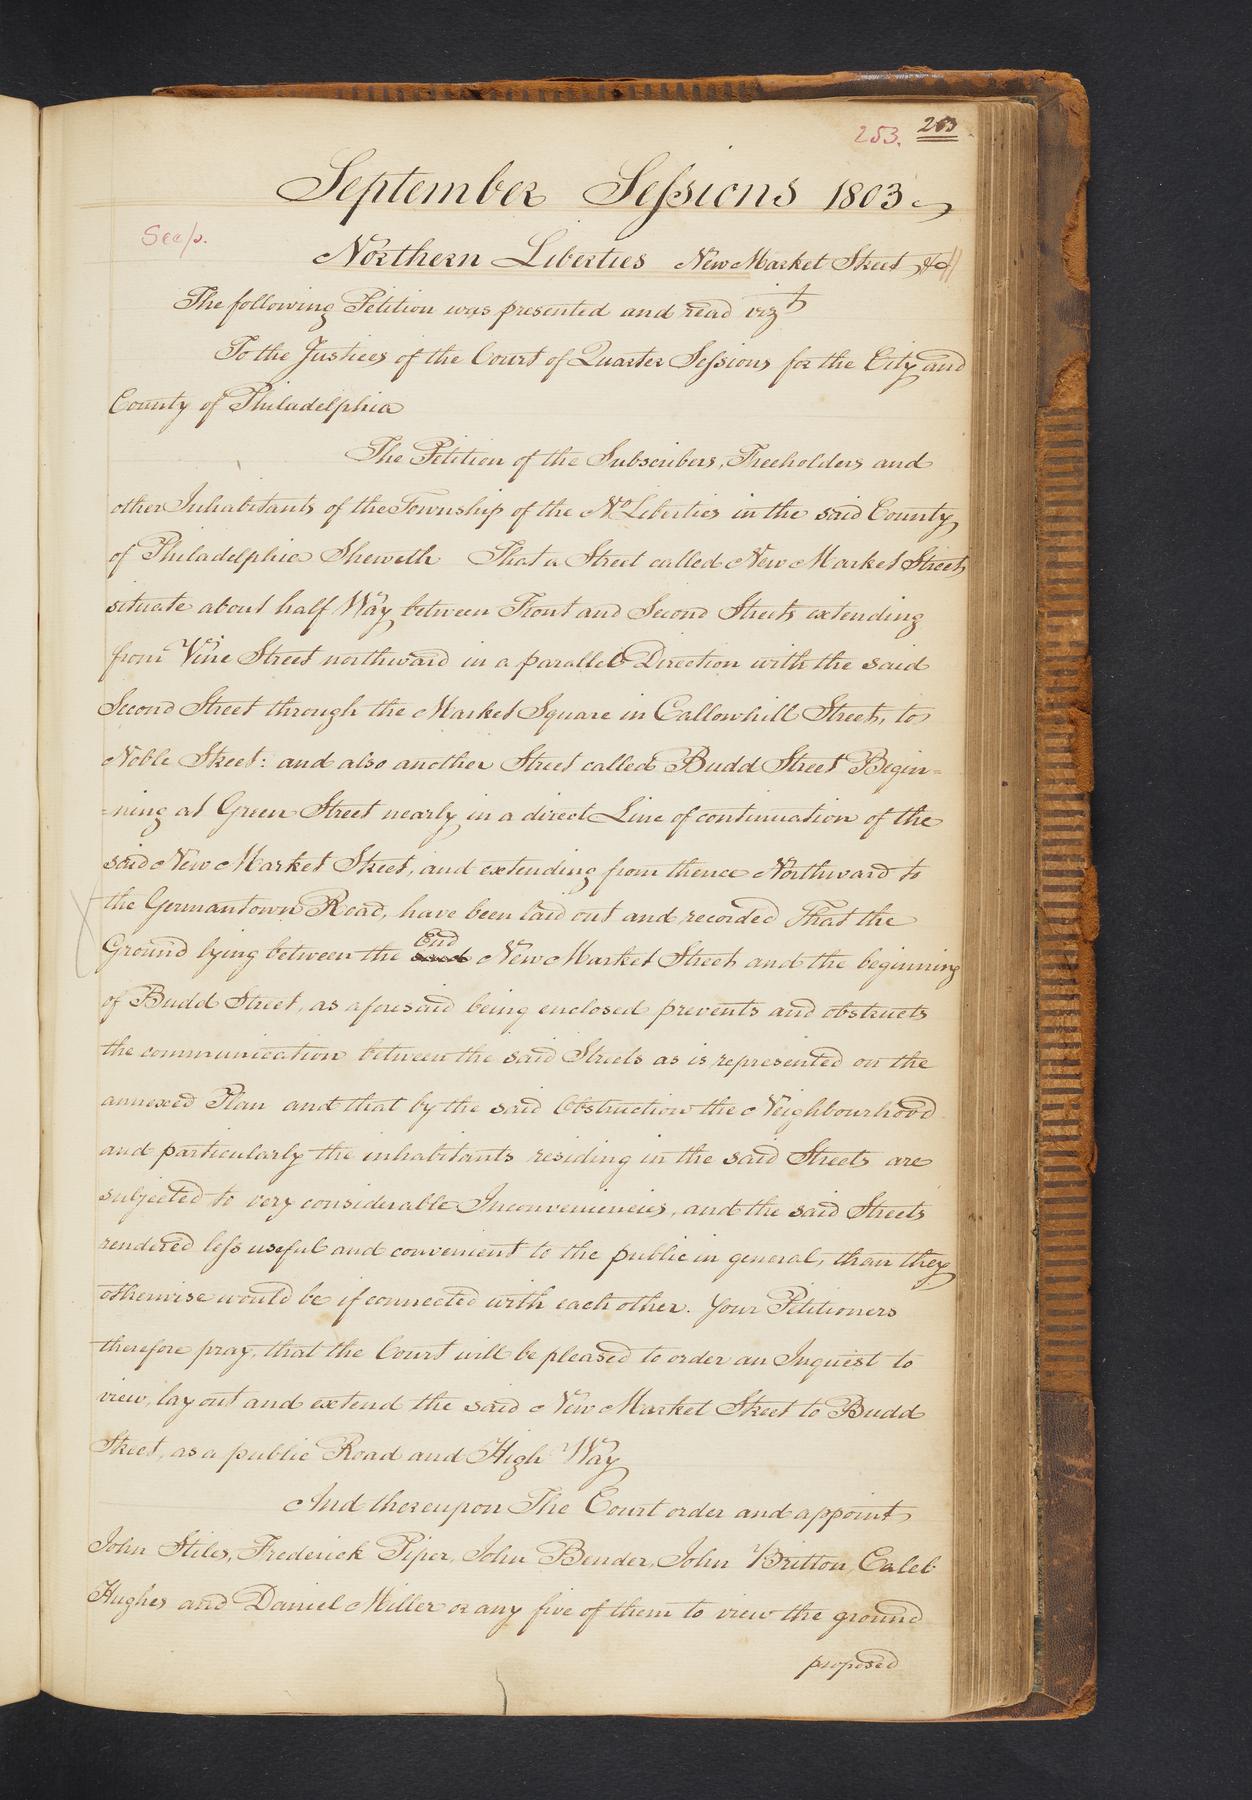 253. 253
September Sessions 1803
See p.
Northern Liberties New Market Street &c
The following Petition was presented and read vizt
To the Justices of the Court of Quarter Sessions for the City and
County of Philadelphia
The Petition of the Subscribers, Freeholders and
other Inhabitants of the Township of the No Liberties in the said County
of Philadelphia Sheweth That a Street called New Market Street
situate about half Way between Front and Second Streets extending
from Vine Street northward in a parallel Direction with the said
Second Street through the Market Square in Callowhill Street, to
Noble Street: and also another Street called Budd Street Begin=
=ning at Green Street nearly in a direct Line of continuation of the
said New Market Street, and extending from thence Northward to
the Germantown Road, have been laid out and recorded That the
End
Ground lying between the New Market Street and the beginning
of Budd Street, as aforesaid being enclosed prevents and obstructs
the communication between the said Streets as is represented on the
annexed Plan and that by the said Obstruction the Neighbourhood
and particularly the inhabitants residing in the said Streets are
subjected to very considerable Inconveniencies, and the said Streets
rendered less useful and convenient to the public in general, than they
otherwise would be if connected with each other. Your Petitioners
therefore pray, that the Court will be pleased to order an Inquest to
view, lay out and extend the said New Market Street to Budd
Street, as a public Road and High Way
And thereupon The Court order and appoint
John Stiles, Frederick Piper, John Bender, John Britton, Caleb
Hughes and Daniel Miller or any five of them to view the ground
proposed